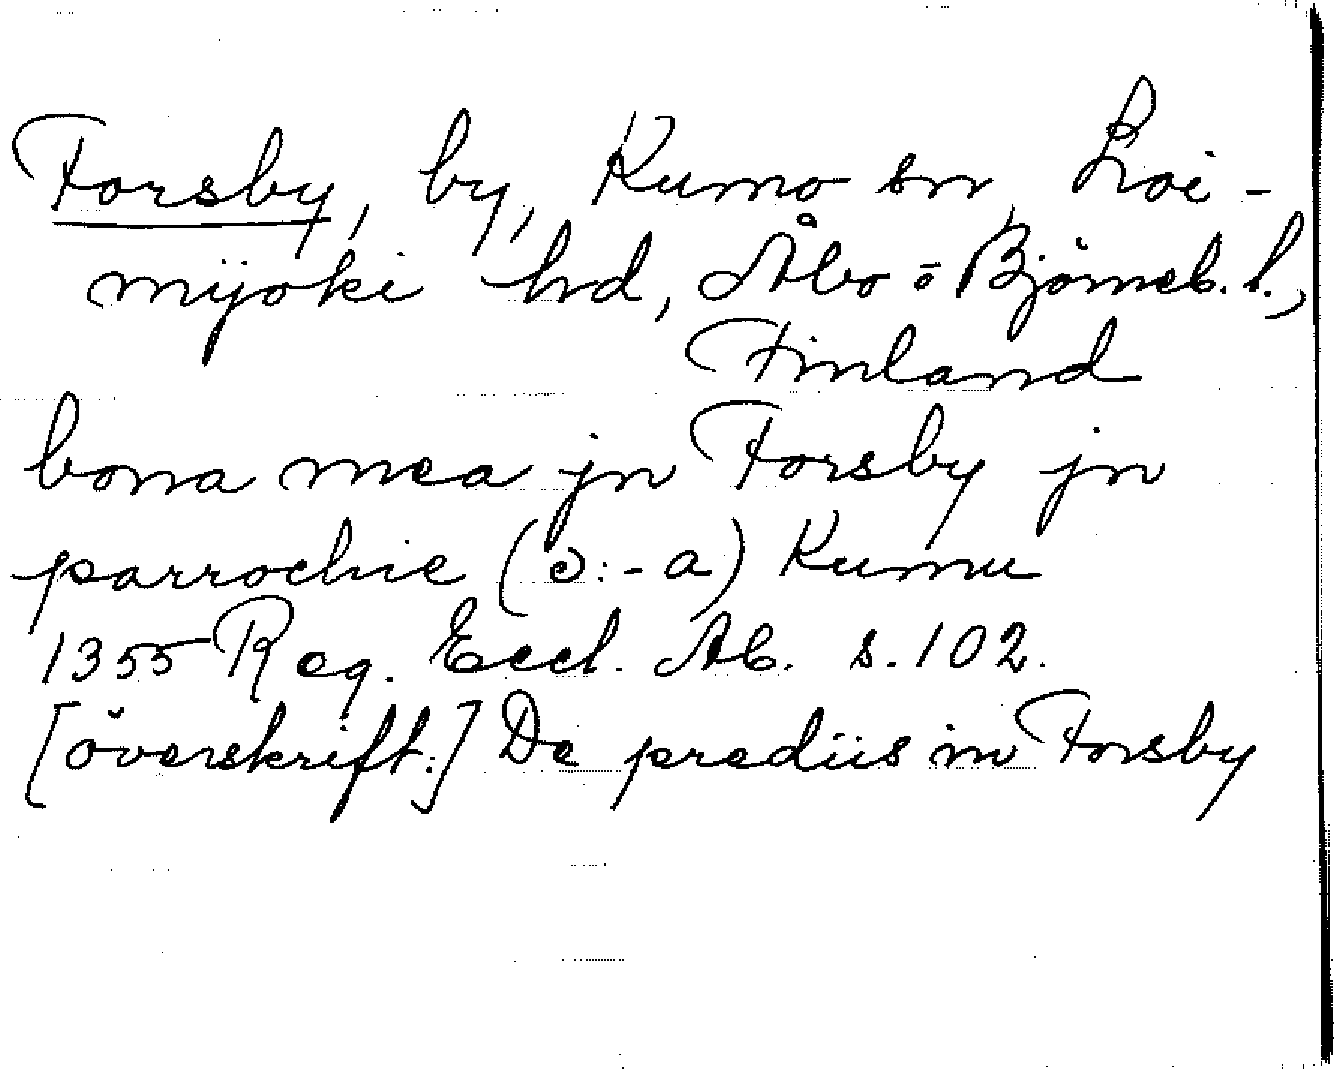 Forsby, by, Kumo sn, Loi-
mijoki hd, Åbo o Björneb. l.,
Finland
bona mea jn Forsby jn
parrochie (ɔ: -a) Kumu
1355 Reg. Eccl. Ab. s. 102.
[överskrift:] De prediis in Forsby